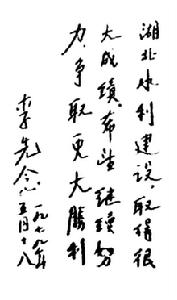 湖北水利建设,取得很
大成績.希望继續努
力,争取更大勝利
李先念
一九七九年
五月十八